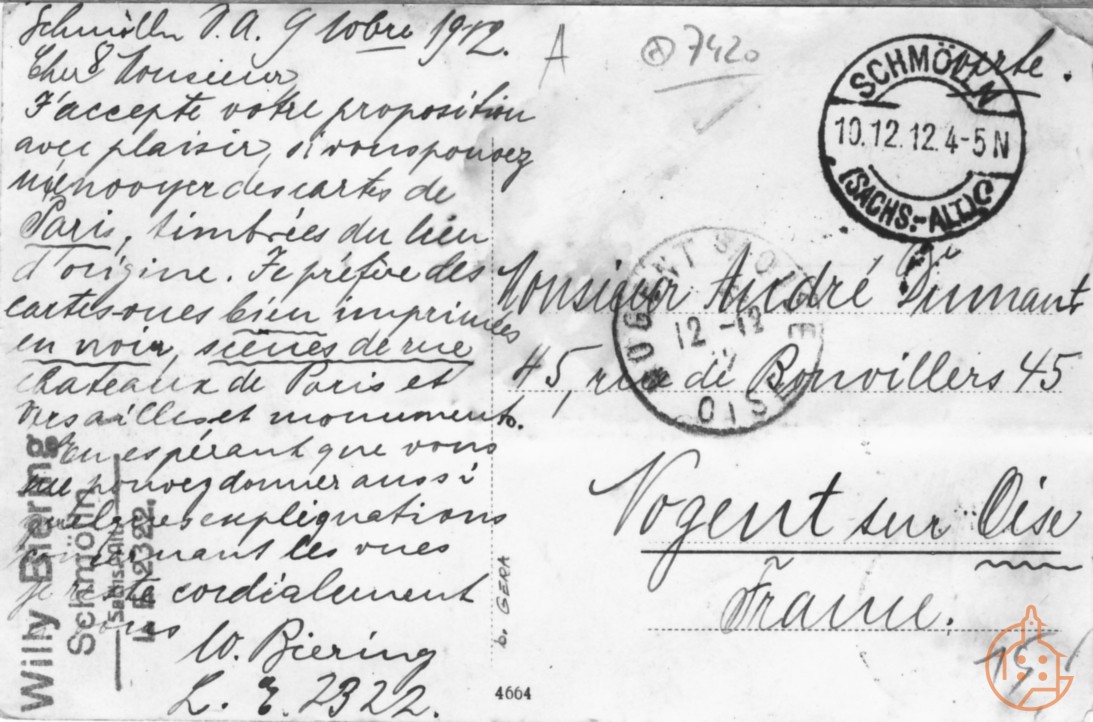 Schmölln S.A. 9 10bre 1912.
Cher Monsieur
J'accepte votre proposition
avec plaisir, si vous pouvez
m'envoyer des cartes de
Paris, timbrées du lieu
d'origine. Je préfère des
cartes-vues bien imprimées
en noir, scènes de rue
chateaux de Paris et
Versailles et monuments.
En espérant que vous
me pouvez donner aussi
quelques explignations
concernant les vues
je reste cordialement
W. Biering
L. E. 2322.
Willy Biering
Schmölln
L. E. 2322.
b. GERA
4664
A
A 7420
SCHMÖLLN
10.12.12. 4-5 N
(SACHS.-ALT.) C
NOGENT S OISE
12 -12
OISE
Monsieur André Dumant
45, rue de Bonvillers 45
Nogent sur Oise
France.